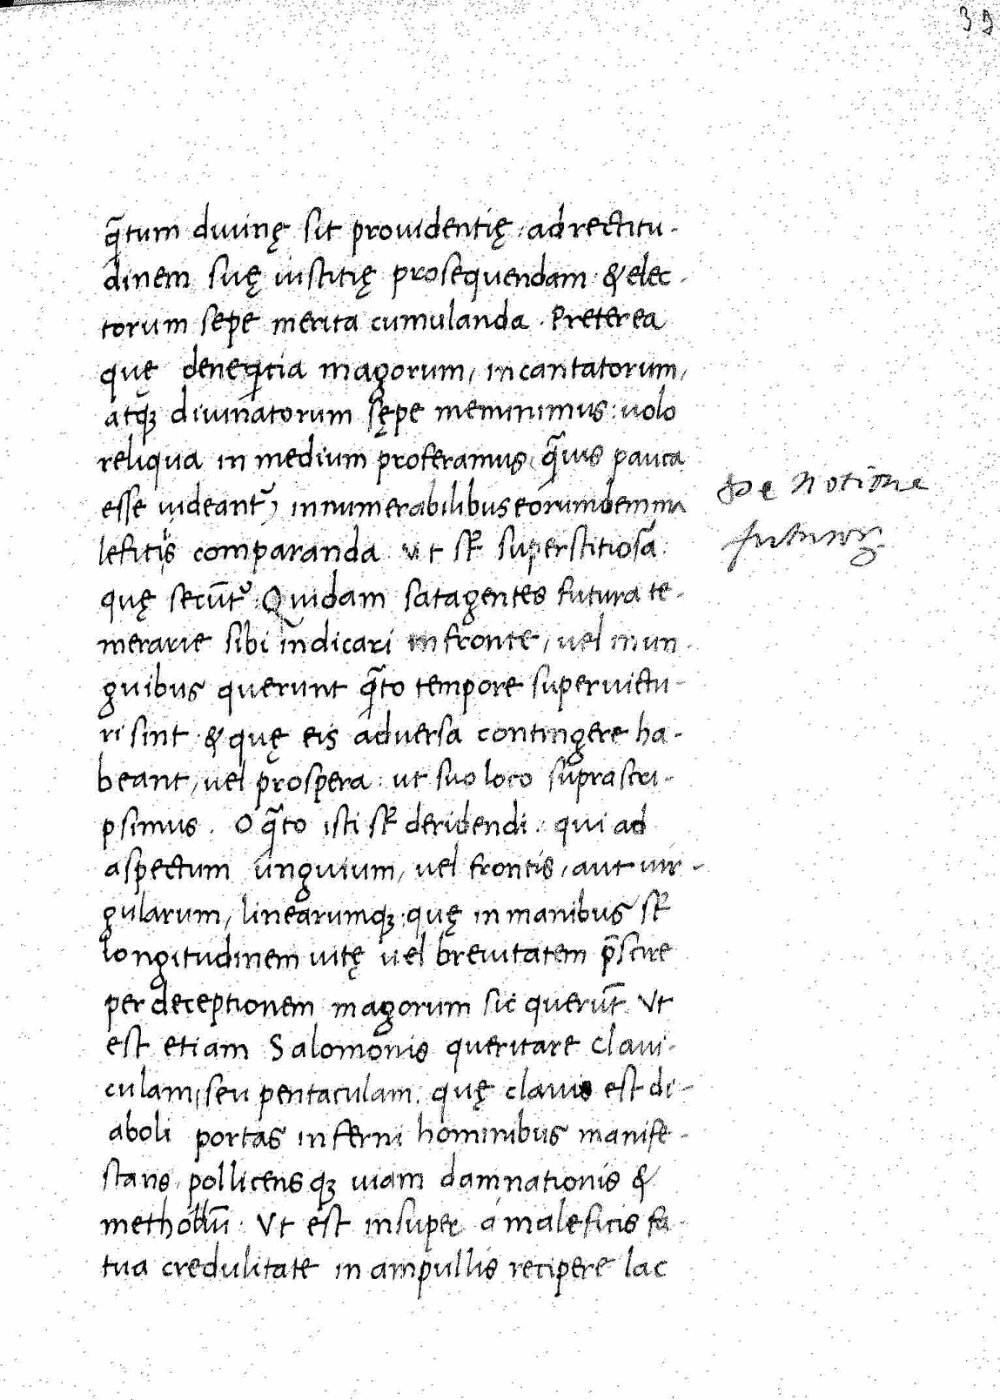 39
q̃tum diuinę sit prouidentię ad rectitu-
dinem suę iustitię prosequendam & elec-
torum sepe merita cumulanda. Preterea
quę de neq̃tia magorum, incantatorum,
atq; diuinatorum sępe meminimus: uolo
reliqua in medium proferamus, q̃uis pauca
esse uideant᷑, innumerabilibus eorumdem ma
lefitijs comparanda. Vt st̃ superstitiosa
quę secũt᷑. Quidam satagentes futura te-
merarie sibi indicari in fronte, uel in un-
guibus querunt q̃to tempore superuictu-
ri sint & quę eis aduersa contingere ha-
beant, uel prospera: ut suo loco supra scri-
psimus. O q̃to isti st̃ deridendi: qui ad
aspectum unguium, uel frontis, aut uir-
gularum, linearumq; quę in manibus st̃
longitudinem uitę uel breuitatem p̃scire
per deceptionem magorum sic querũt. Vt
est etiam Salomonis queritare claui-
culam, seu pentaculam: quę clauis est di-
aboli portas inferni hominibus manife-
stans, pollicensq; uiam damnationis &
methodũ. Vt est insuper a maleficis fa-
tua credulitate in ampullis recipere lac
De notione
futuror.